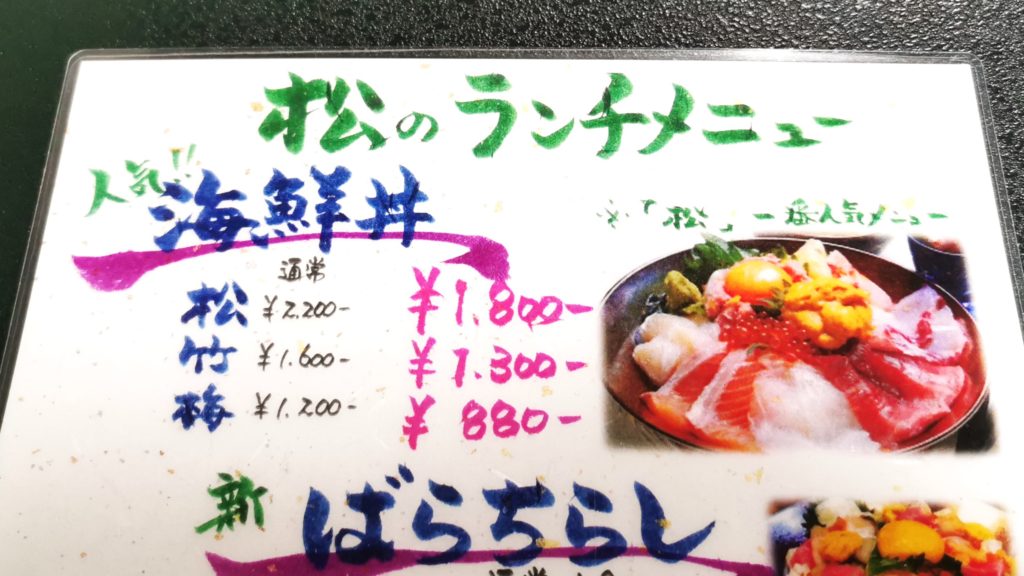 松のランチメニュー
人気!!
海鮮丼
※「松」一番人気メニュー
通常
松 ¥2,200- ¥1,800-
竹 ¥1,600- ¥1,300-
梅 ¥1,200- ¥880-
新
ばらちらし
通常